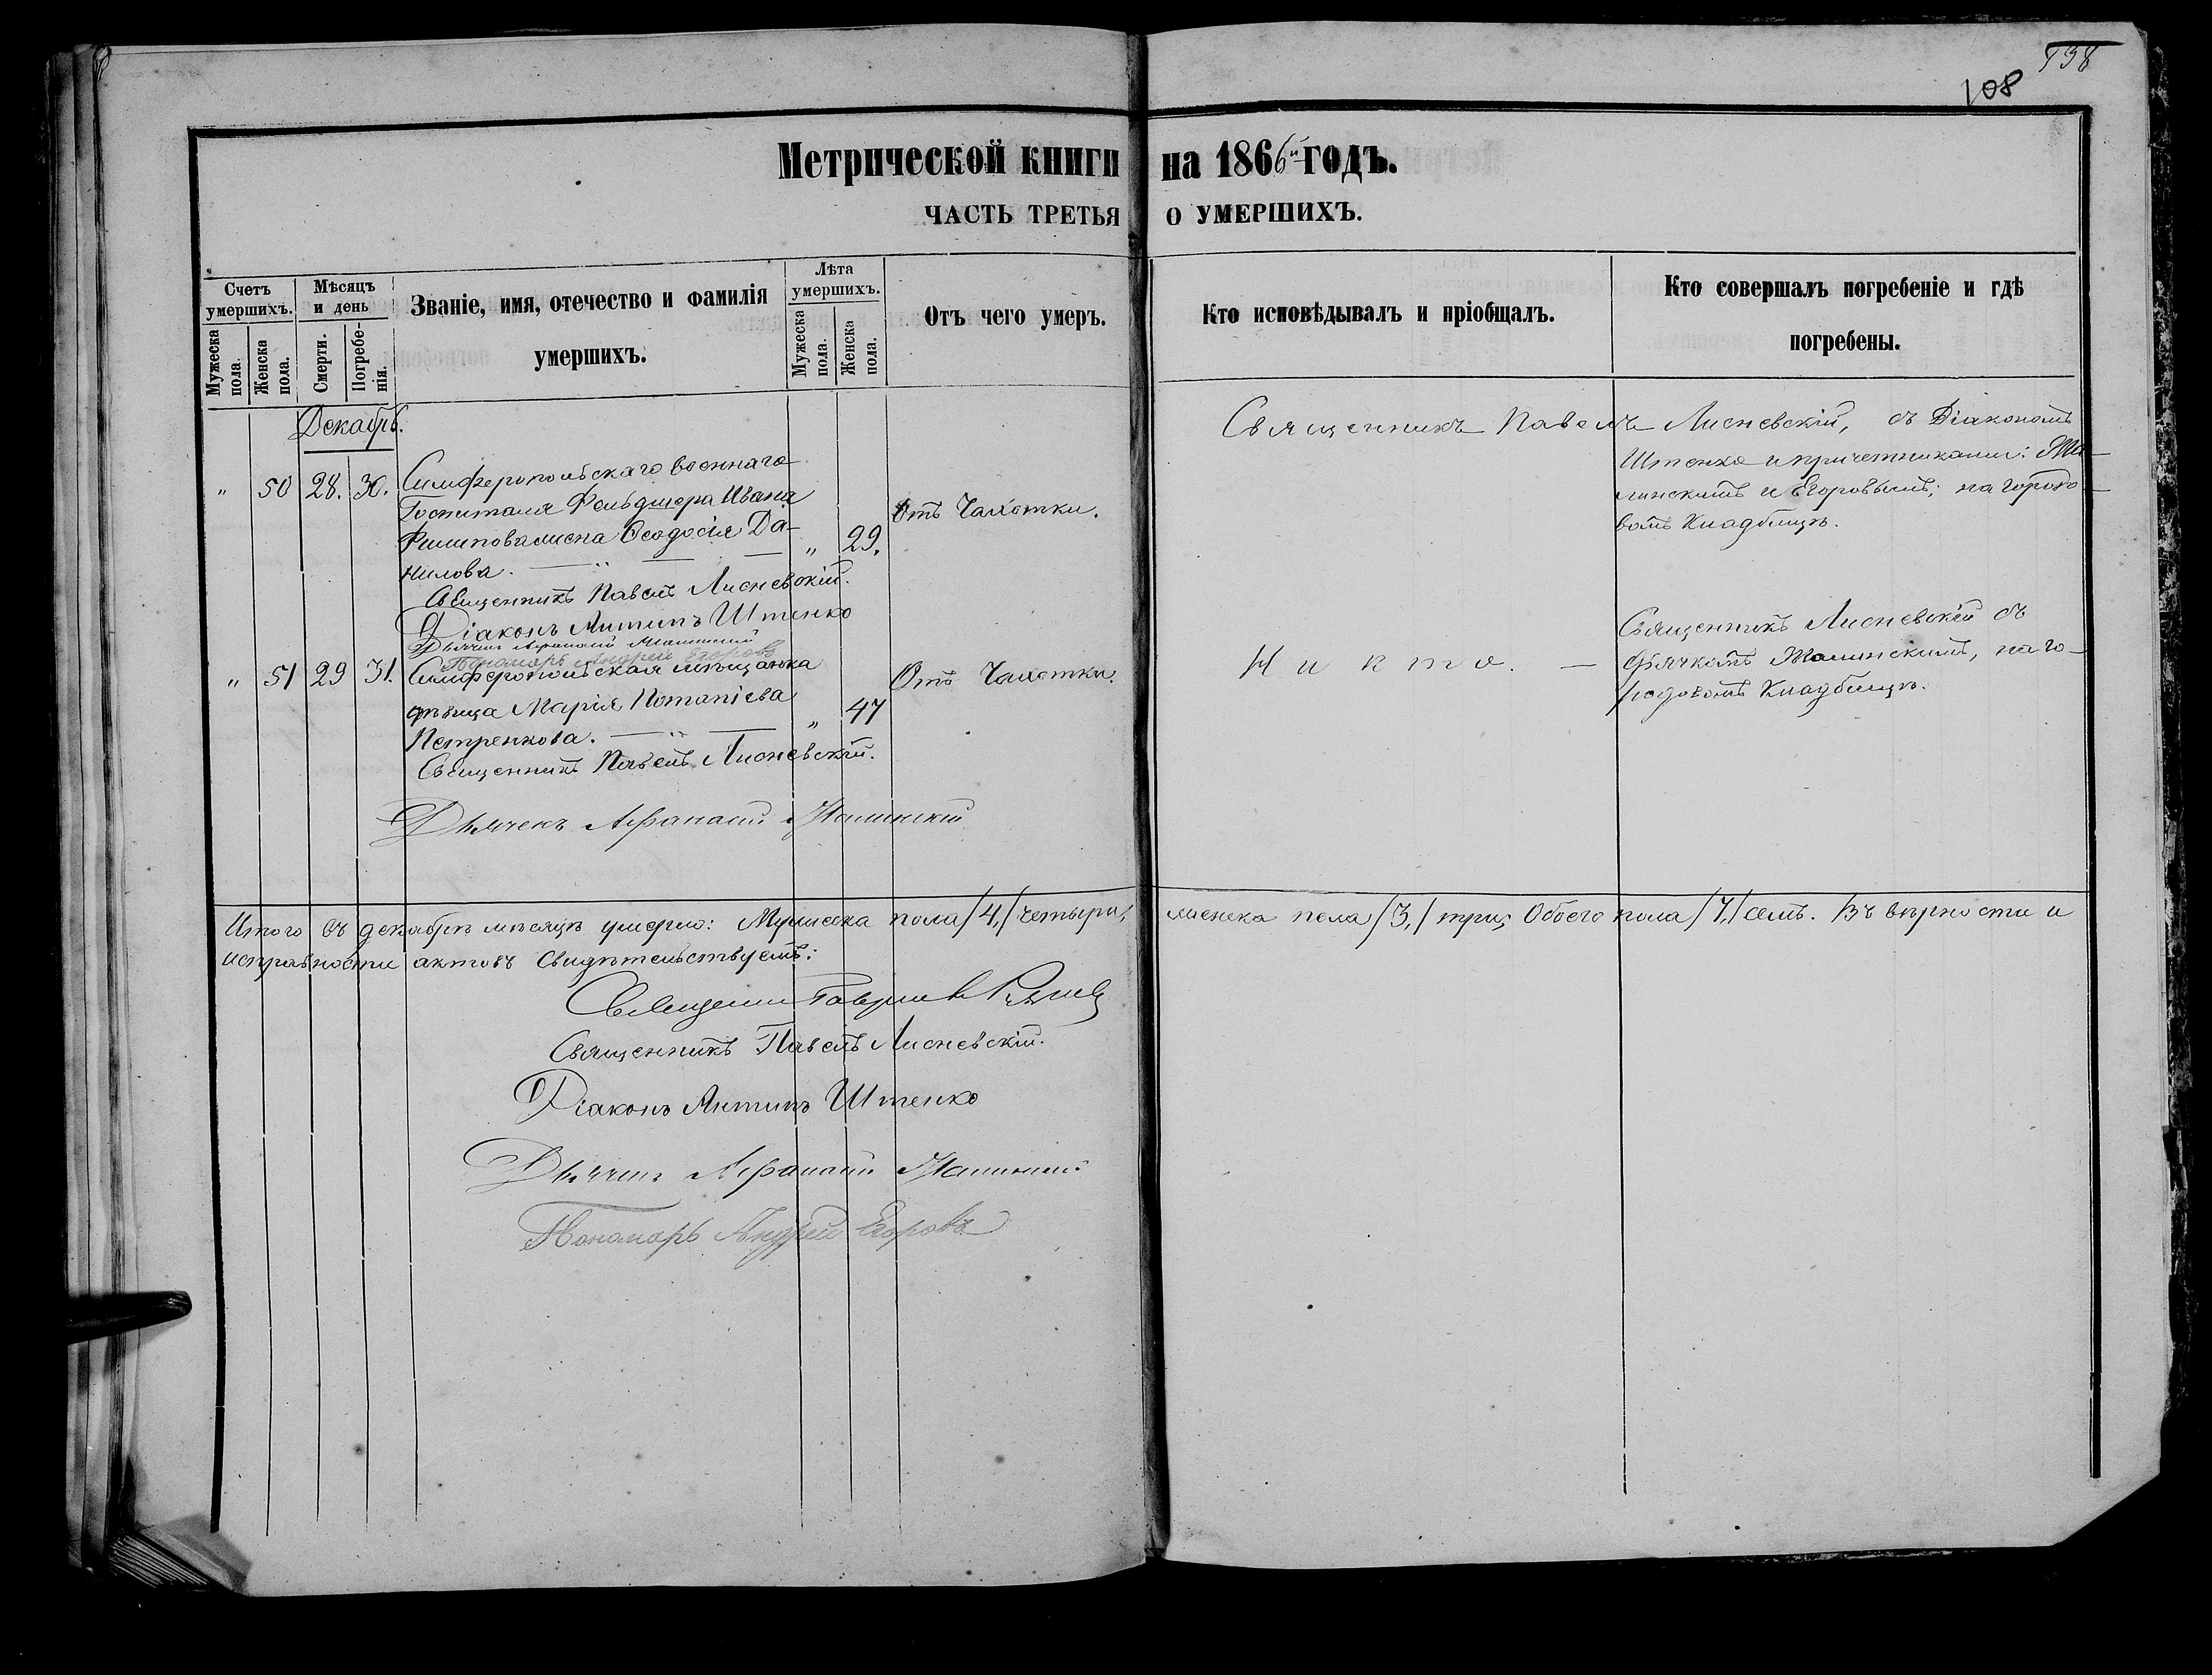 138
108
Метрической книги на 1866й годъ.
ЧАСТЬ ТРЕТЬЯ О УМЕРШИХЪ.
Счетъ умершихъ.
Мужеска пола.
Женска пола.
Мѣсяцъ и день
Смерти.
Погребенія.
Званіе, имя, отечество и фамилія
умершихъ.
Лѣта умершихъ.
Мужеска пола.
Женска пола.
Отъ чего умеръ.
Кто исповѣдывалъ и пріобщалъ.
Кто совершалъ погребеніе и гдѣ
погребены.
Декабрь.
" 50 28. 30. Симферопольскаго военнаго
Госпиталя Фельдшера Ивана
Филипова жена Ѳеодосія Да-
нилова. " 29.
Отъ Чахотки.
Священникъ Павелъ Лисневскій, съ Діакономъ
Штенко и причетниками: Жа-
линскимъ и Егоровымъ; на городо-
вомъ Кладбищѣ.
Священникъ Павелъ Лисневскій.
Діаконъ Антипъ Штенко
Дьячекъ Афанасій Жалинскій
Пономарь Андрей Егоровъ
" 51 29 31. Симферопольская мѣщанка
дѣвица Марія Потапіева
Петренкова. " 47
Отъ Чахотки.
Никто. —
Священникъ Лисневскій съ
дьячкомъ Жалинскимъ, на го-
родовомъ Кладбищѣ.
Священникъ Павелъ Лисневскій.
Дьячекъ Афанасій Жалинскій
Итого въ декабрѣ мѣсяцѣ умерло: Мужеска пола /4,/ четыри, женска пола /3,/ три; Обоего пола /7,/ семь. Въ вѣрности и
исправности актовъ Свидѣтельствуемъ:
Священникъ Гавріилъ
Священникъ Павелъ Лисневскій.
Діаконъ Антипъ Штенко
Дьячекъ Афанасій Жалинскій
Пономарь Андрей Егоровъ